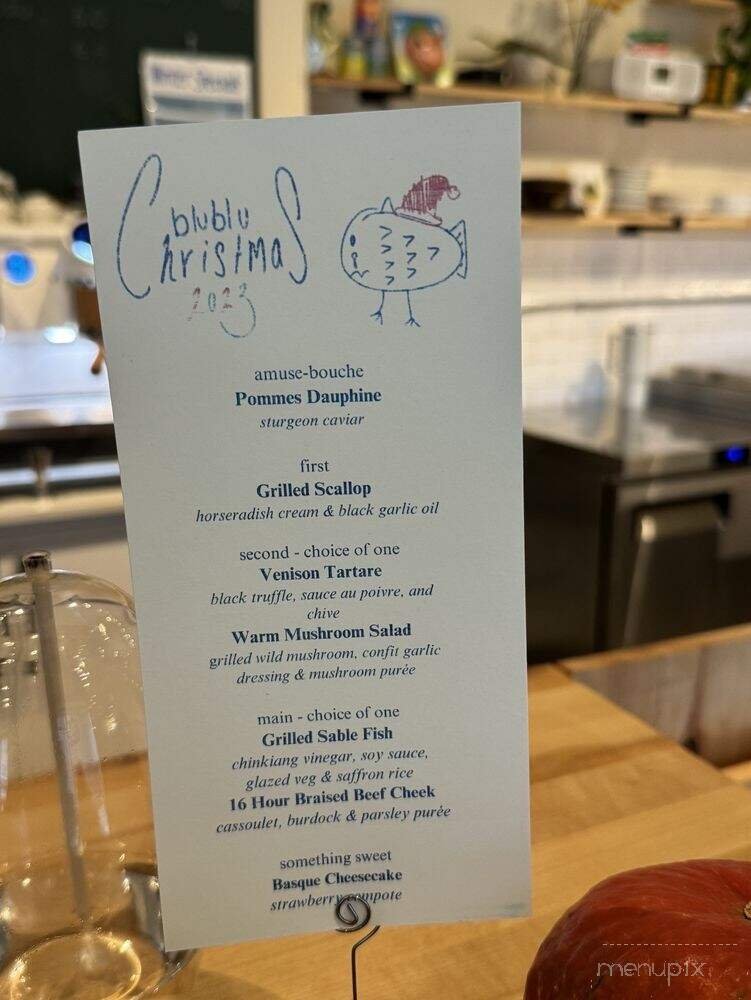 blublu
Christmas
2023
amuse-bouche
Pommes Dauphine
sturgeon caviar
first
Grilled Scallop
horseradish cream & black garlic oil
second - choice of one
Venison Tartare
black truffle, sauce au poivre, and
chive
Warm Mushroom Salad
grilled wild mushroom, confit garlic
dressing & mushroom purée
main - choice of one
Grilled Sable Fish
chinkiang vinegar, soy sauce,
glazed veg & saffron rice
16 Hour Braised Beef Cheek
cassoulet, burdock & parsley purée
something sweet
Basque Cheesecake
strawberry compote
menupix